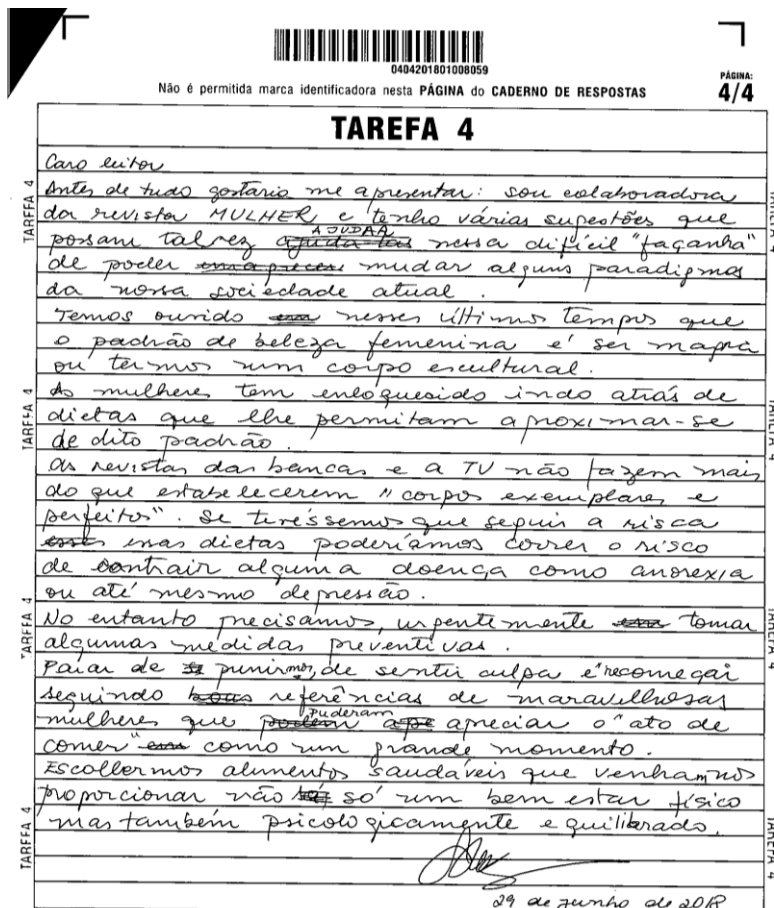 0404201801008059
Não é permitida marca identificadora nesta PÁGINA do CADERNO DE RESPOSTAS
PÁGINA:
4/4
TAREFA 4
Caro leitor
Antes de tudo gostaria me apresentar: sou colaboradora
da revista MULHER e tenho várias sugestões que
possam talvez AJUDAR nessa difícil "façanha"
de poder mudar alguns paradigmas
da nossa sociedade atual.
Temos ouvido nesses últimos tempos que
o padrão de beleza femenina é ser magra
ou termos um corpo escultural.
As mulheres tem enloquesido indo atrás de
dietas que lhe permitam aproximar-se
de dito padrão.
As revistas das bancas e a TV não fazem mais
do que estabelecerem "corpos exemplares e
perfeitos". Se tivéssemos que seguir a risca
essas dietas poderíamos correr o risco
de contrair alguma doença como anorexia
ou até mesmo depressão.
No entanto precisamos, urgentemente tomar
algumas medidas preventivas.
Parar de punirmos, de sentir culpa e recomeçar
seguindo referências de maravilhosas
mulheres que puderam apreciar o "ato de
comer" como um grande momento.
Escolhermos alimentos saudáveis que venham nos
proporcionar não só um bem estar físico
mas também psicologicamente equilibrado.
29 de junho de 2018
TAREFA 4
TAREFA 4
TAREFA 4
TAREFA 4
TAREFA 4
TAREFA 4
TAREFA 4
TAREFA 4